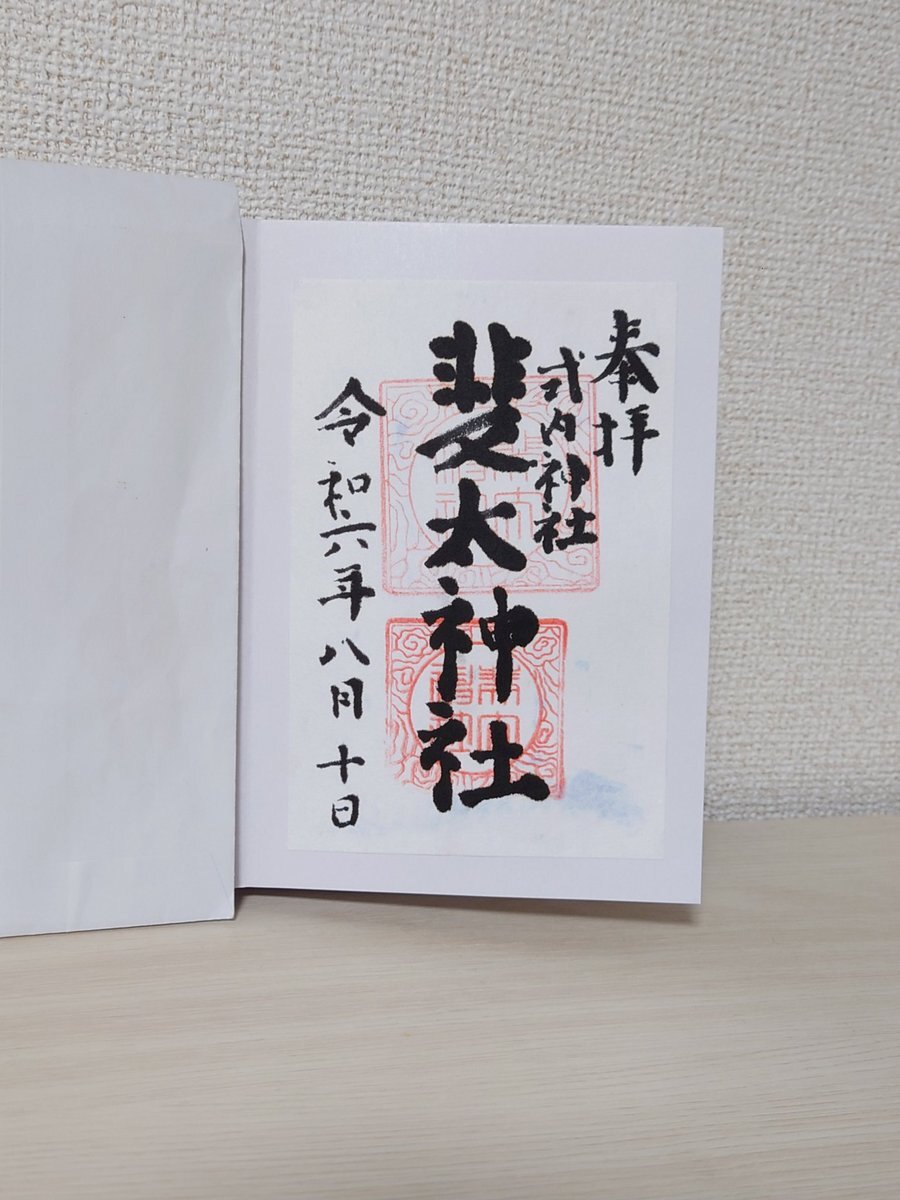 奉拝
式内神社
斐太神社
令和六年八月十日